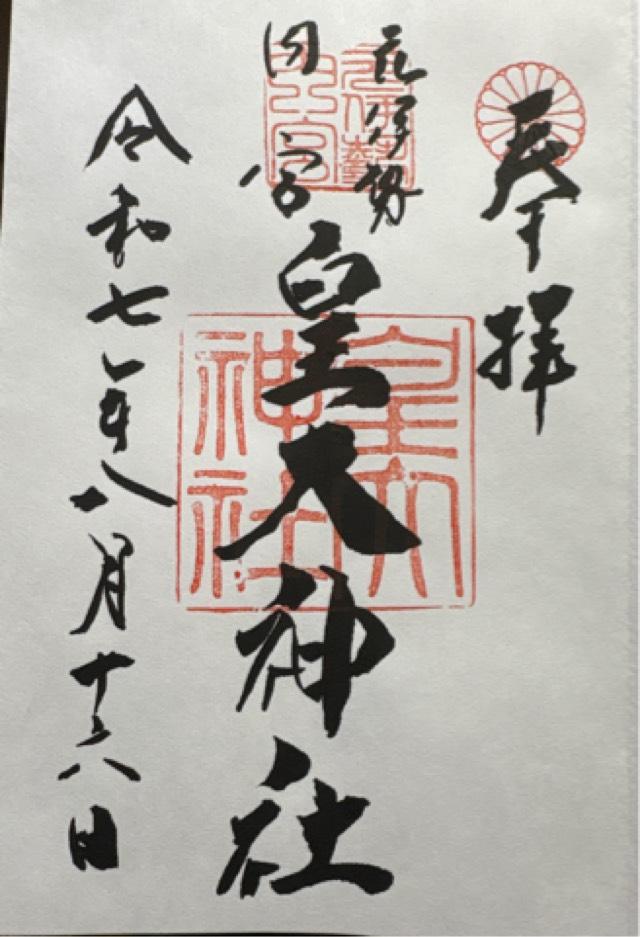 奉拝
元伊勢
内宮
皇大神社
令和七年八月十六日
元伊勢
内宮
皇大
神社